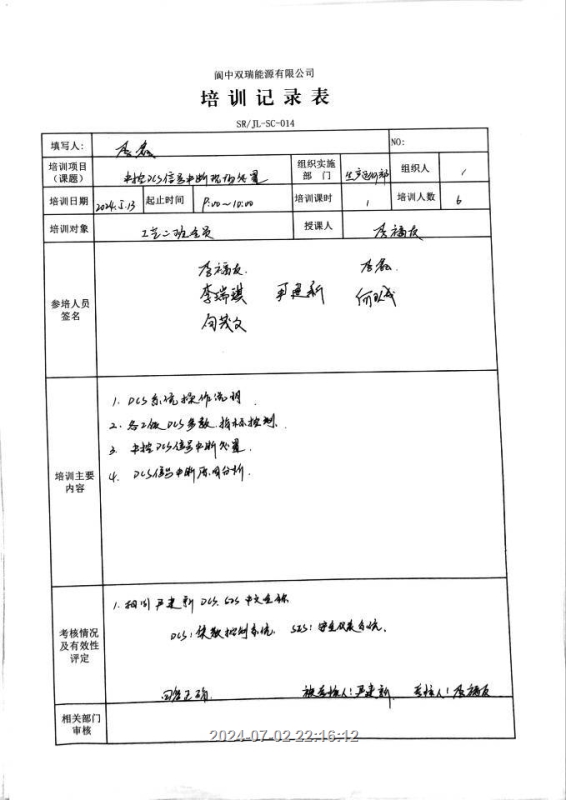 阆中双瑞能源有限公司
培训记录表
SR/JL-SC-014
填写人: 李磊 NO:
培训项目（课题） 中控DCS信号中断现场处置 组织实施部门 生产运行部 组织人 /
培训日期 2024.5.13 起止时间 9:00~10:00 培训课时 1 培训人数 6
培训对象 工艺二班全员 授课人 李福友
参培人员签名
李福友 李磊
李瑞琪 严建新
向茂文
培训主要内容
1. DCS系统操作说明.
2. 各工段DCS参数.指标控制.
3. 中控DCS信号中断处置.
4. DCS信号中断原因分析.
考核情况及有效性评定
1. 抽问严建新DCS.SIS中文全称
DCS: 集散控制系统. SIS: 安全仪表系统.
回答正确 被考核人: 严建新 考核人: 李福友
相关部门审核
2024-07-02 22:16:12